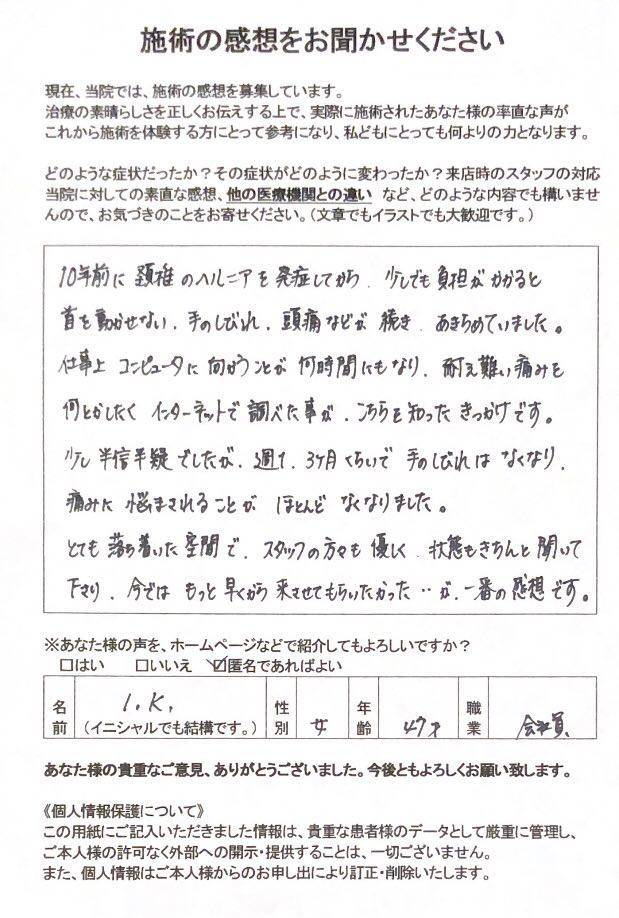 施術の感想をお聞かせください
現在、当院では、施術の感想を募集しています。
治療の素晴らしさを正しくお伝えする上で、実際に施術されたあなた様の率直な声が
これから施術を体験する方にとって参考になり、私どもにとっても何よりの力となります。
どのような症状だったか？その症状がどのように変わったか？来店時のスタッフの対応
当院に対しての素直な感想、他の医療機関との違い など、どのような内容でも構いませ
んので、お気づきのことをお寄せください。（文章でもイラストでも大歓迎です。）
10年前に 頚椎 のヘルニアを 発症してから、少しでも負担がかかると
首を動かせない、手のしびれ、頭痛などが 続き、あきらめていました。
仕事上 コンピュータに 向かうことが 何時間にもなり、耐え難い痛みを
何とかしたく インターネットで調べた事が、こちらを知った きっかけです。
少し 半信半疑でしたが、週1、3ヶ月くらいで 手のしびれは なくなり、
痛みに 悩まされることが ほとんど なくなりました。
とても 落ち着いた 空間で、スタッフの方々も 優しく、状態もきちんと聞いて
下さり、今では もっと 早くから 来させてもらいたかった‥が、一番の感想です。
※あなた様の声を、ホームページなどで紹介してもよろしいですか？
□はい □いいえ ☑匿名であればよい
名前 I.K. （イニシャルでも結構です。） 性別 女 年齢 47才 職業 会社員
あなた様の貴重なご意見、ありがとうございました。今後ともよろしくお願い致します。
《個人情報保護について》
この用紙にご記入いただきました情報は、貴重な患者様のデータとして厳重に管理し、
ご本人様の許可なく外部への開示・提供することは、一切ございません。
また、個人情報はご本人様からのお申し出により訂正・削除いたします。